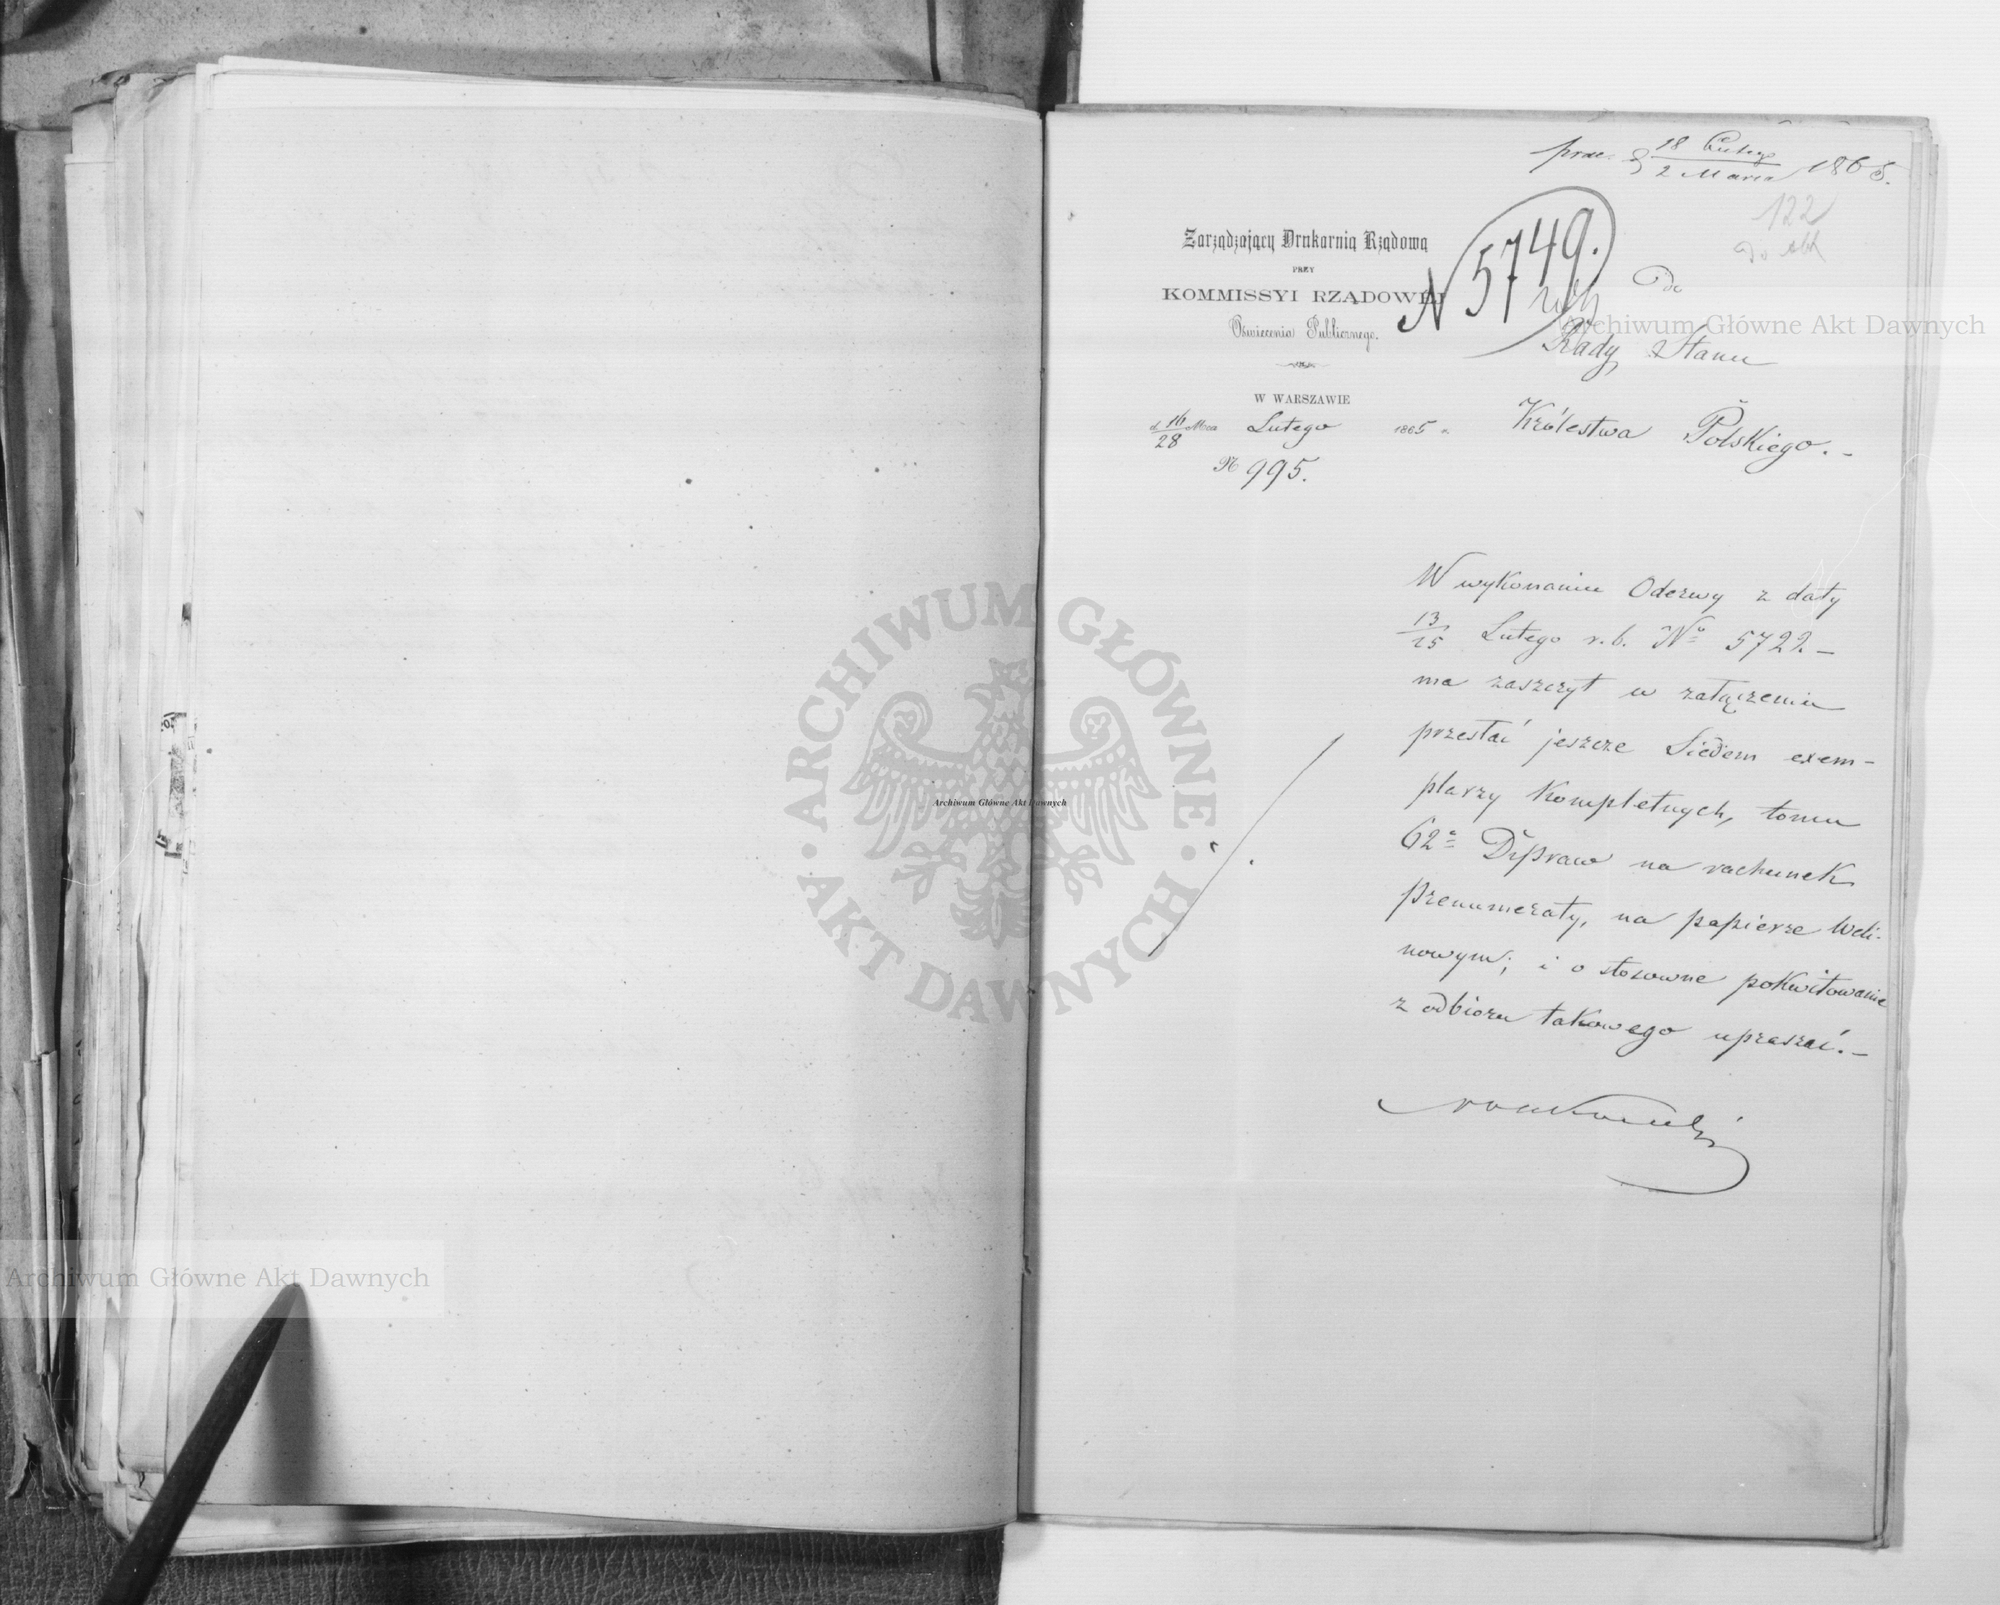 prae: d 18 Lutego / 2 Marca 1865.
122
do akt
Zarządzający Drukarnią Rządową
PRZY
KOMMISSYI RZĄDOWEJ
Oświecenia Publicznego.
W WARSZAWIE
d. 16/28 Mca Lutego 1865 r.
№ 995.
N 5749.
Do
Rady Stanu
Królestwa Polskiego. -
W wykonaniu Odezwy z daty
13/25 Lutego r. b. No 5722. -
ma zaszczyt w załączeniu
przesłać jeszcze Siedem exem-
plarzy kompletnych, tomu
62o Dz. praw na rachunek
prenumeraty, na papierze Weli-
nowym; i o stosowne pokwitowanie
z odbioru takowego upraszać. -
Archiwum Główne Akt Dawnych
Archiwum Główne Akt Dawnych
Archiwum Główne Akt Dawnych
ARCHIWUM GŁÓWNE · AKT DAWNYCH ·